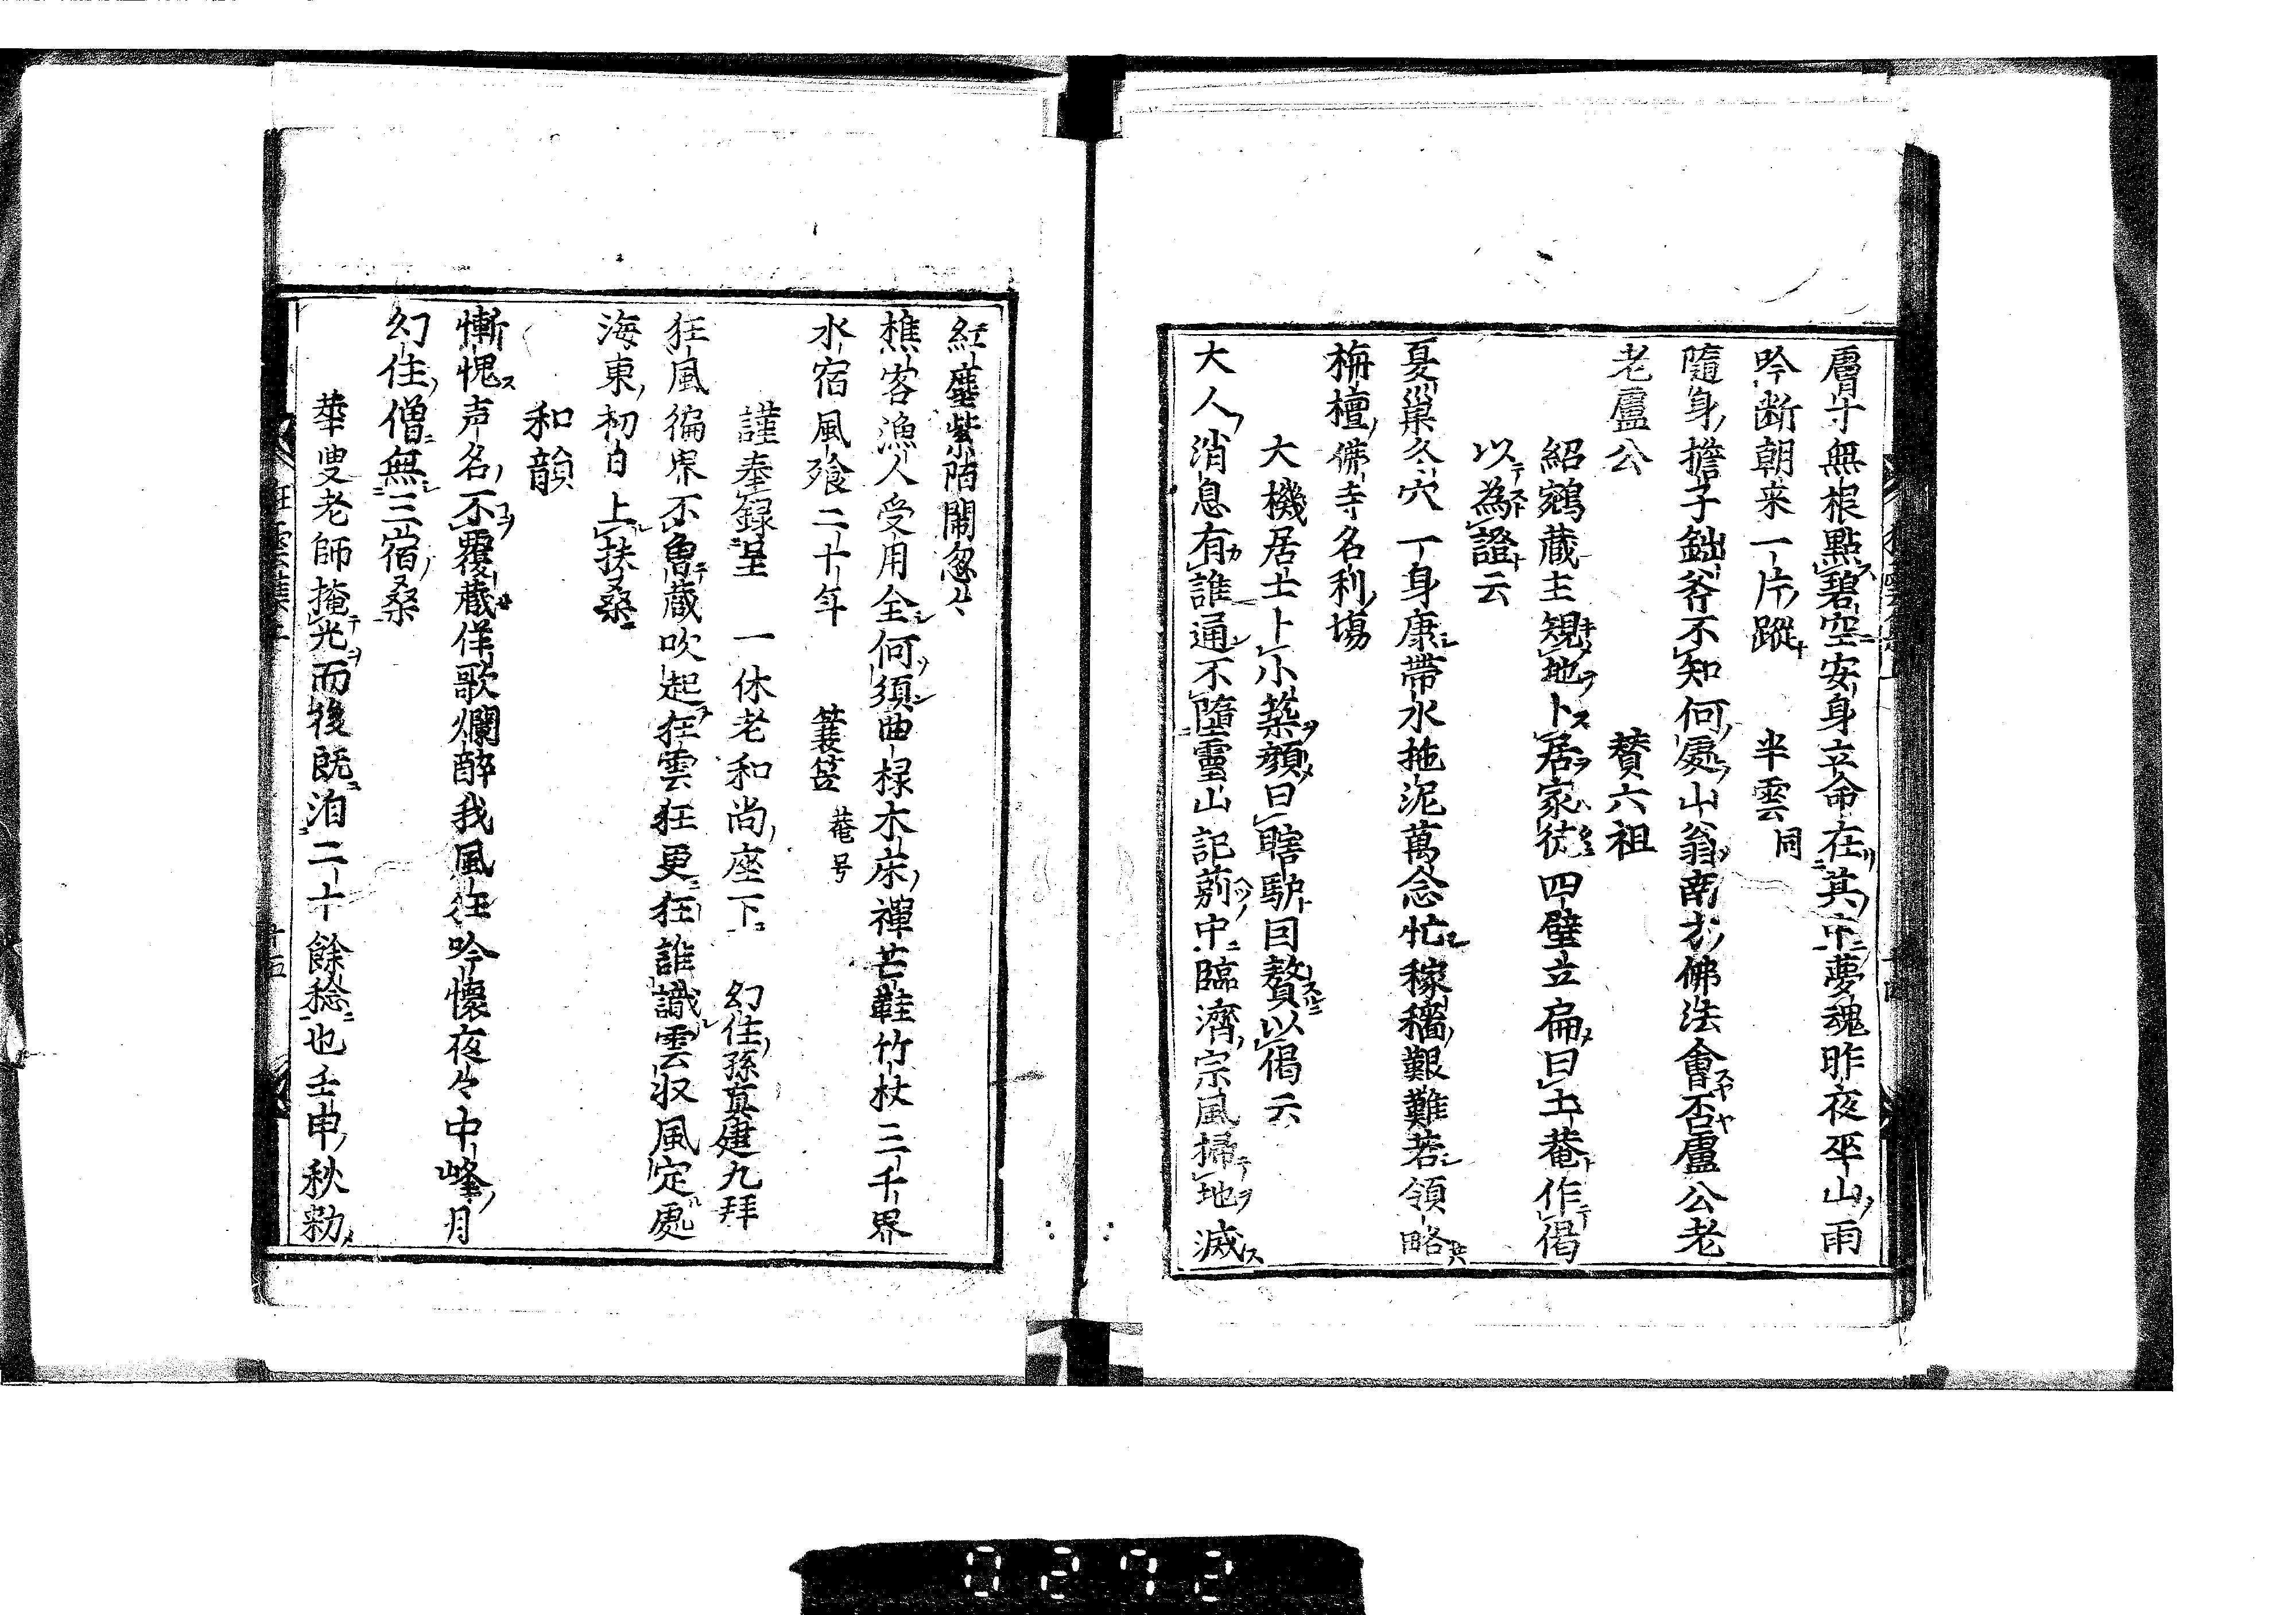 膚寸無根點碧空安身立命在其中夢魂昨夜巫山雨
吟断朝来一片蹤　半雲同
隨身擔子鈯斧不知何處山翁南方佛法會否盧公老
老盧公　賛六祖
紹鴳蔵主䂓地卜居家徒四壁立扁曰土菴作偈
以為證云
夏巢久穴一身康帶水拖泥萬念忙稼穡艱難若領略
栴檀佛寺名利場
大機居士卜小築顏曰瞎馿因贅以偈云
大人消息有誰通不墮靈山記莂中臨濟宗風掃地滅
紅塵紫陌鬧怱々
樵客漁人受用全何須曲椂木床禪芒鞋竹杖三千界
水宿風飡二十年　蓑笠菴号
謹奉録呈　一休老和尚座下　幻住孫真建九拜
狂風徧界不曽蔵吹起狂雲狂更狂誰識雲収風定處
海東初日上扶桑
和韻
慚愧声名不覆蔵佯歌爛醉我風狂吟懷夜々中峰月
幻住僧無三宿桑
華叟老師掩光而後既洎二十餘稔也壬申秋勑
狂雲集
十五
0272